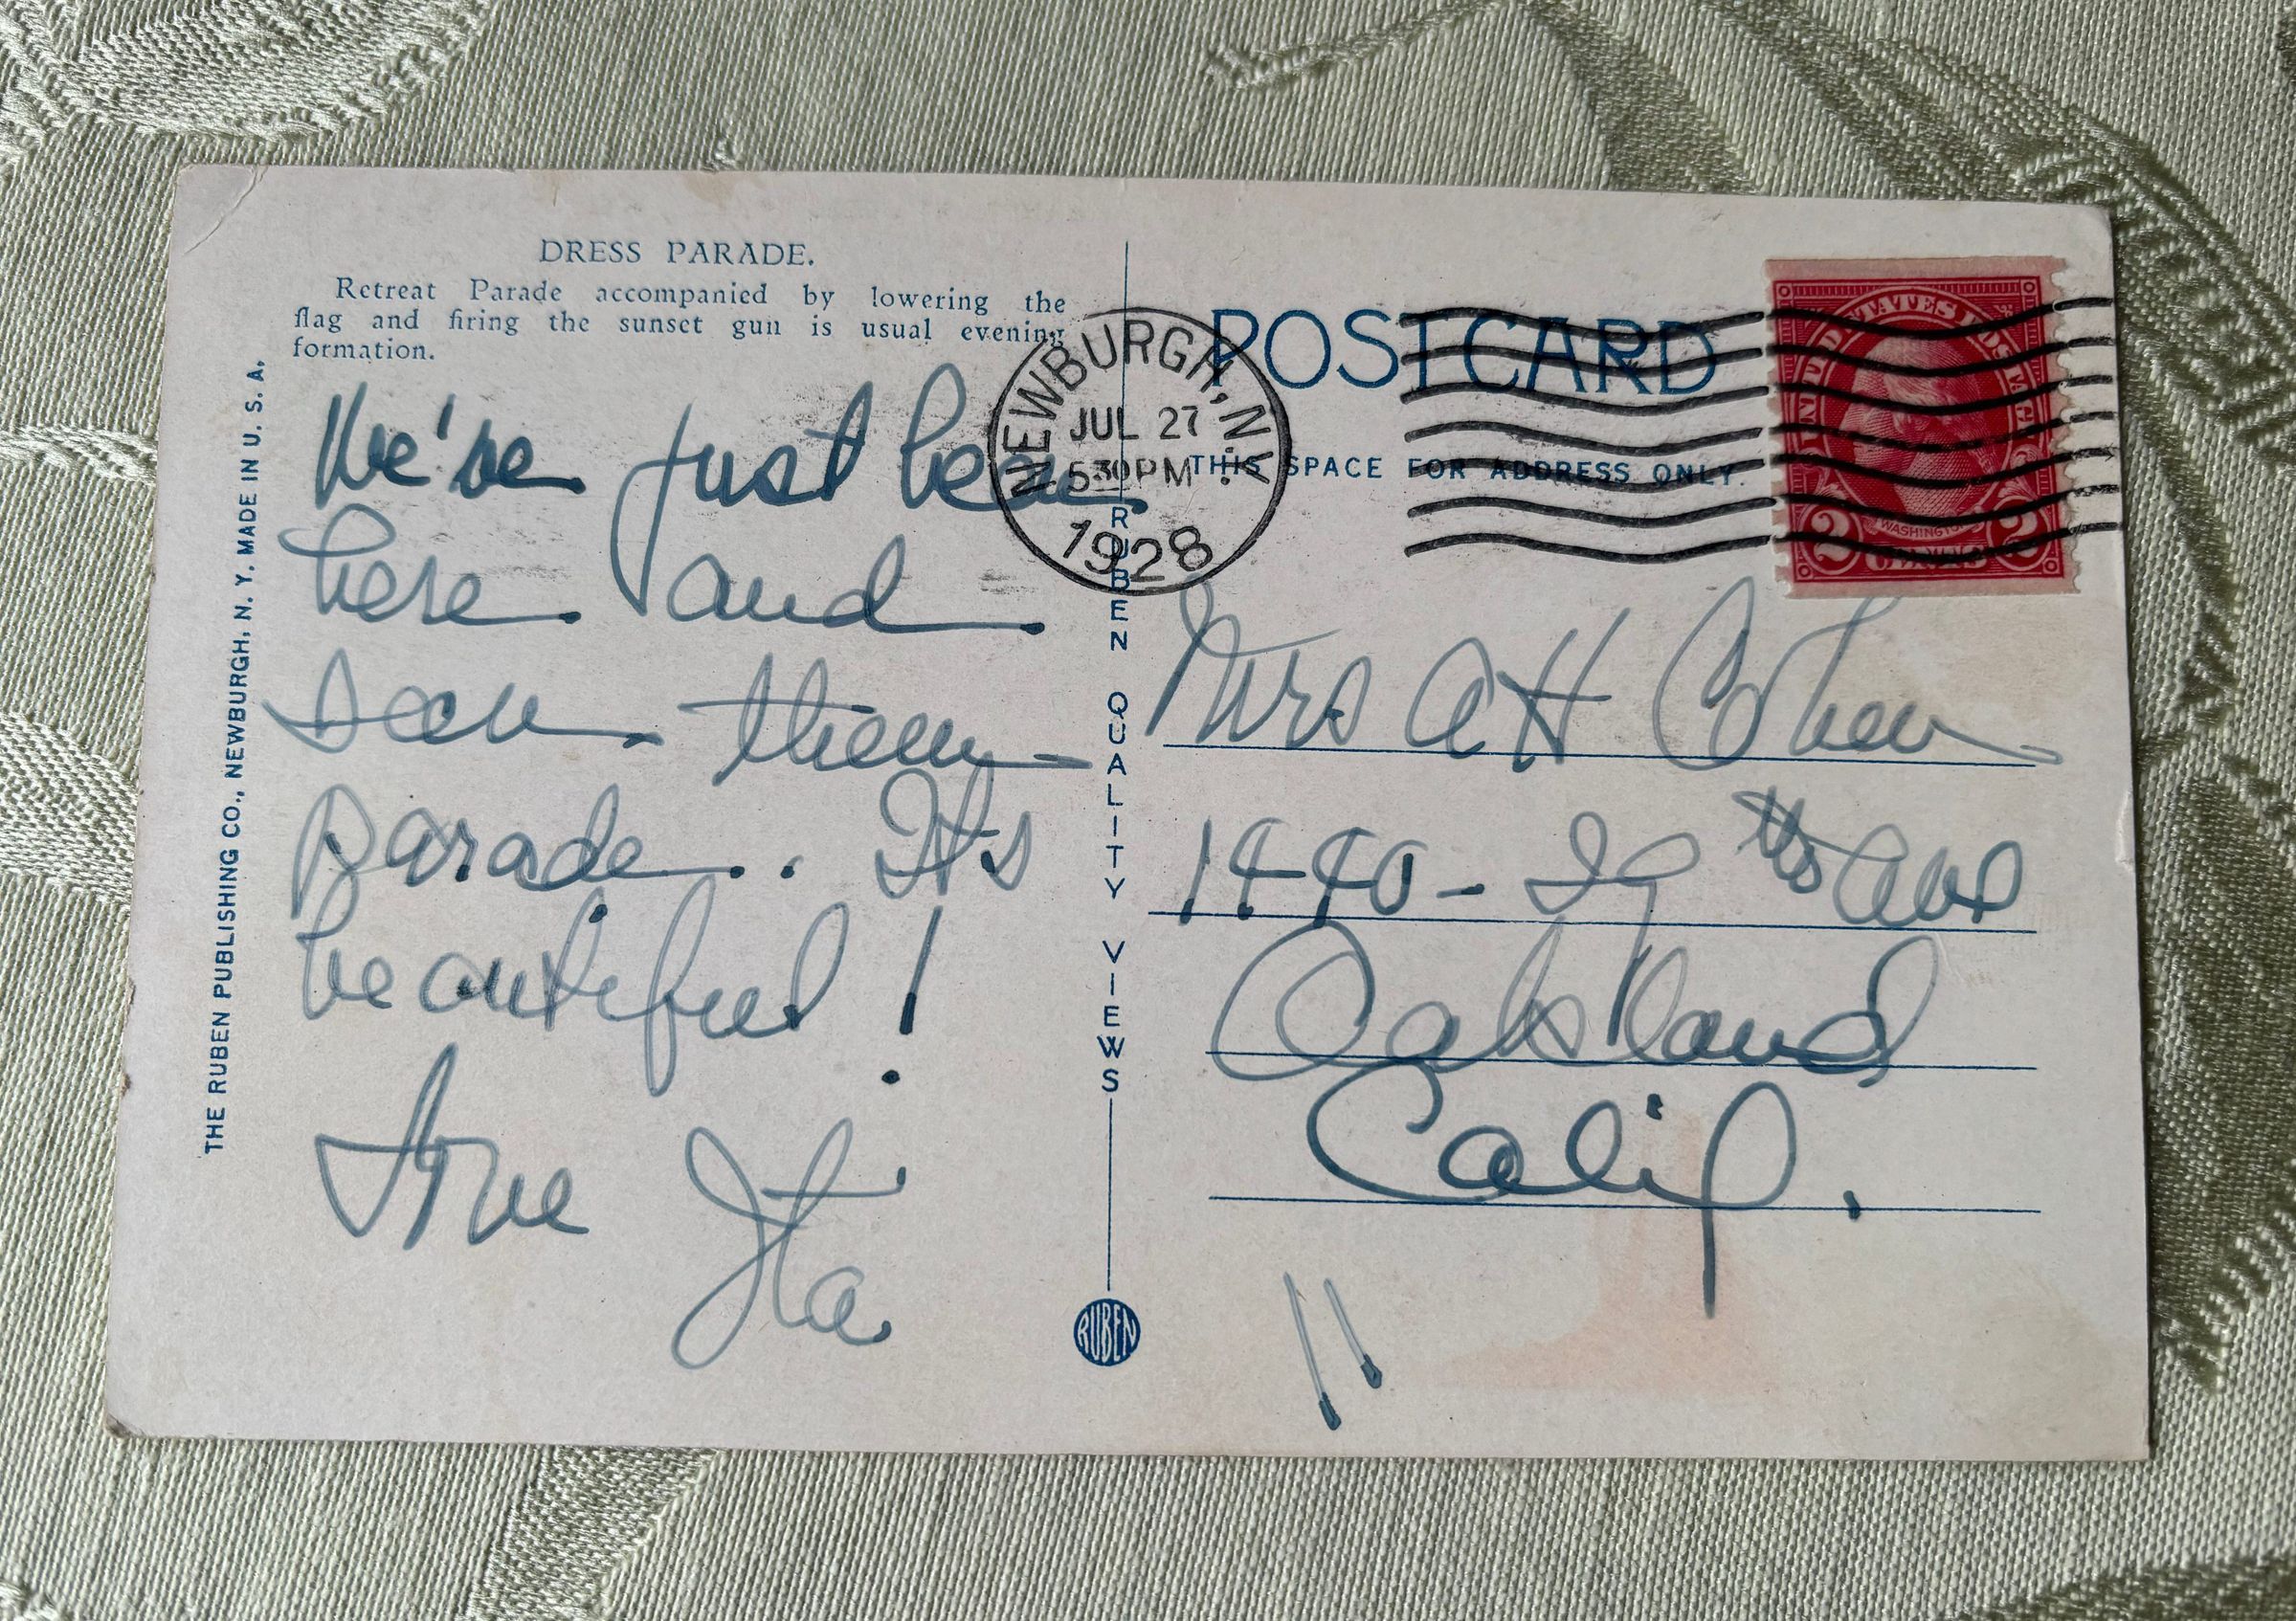 DRESS PARADE.
Retreat Parade accompanied by lowering the
flag and firing the sunset gun is usual evening
formation.
We've just been
here and
seen them
parade.. Its
beautiful!
Love Ita
THE RUBEN PUBLISHING CO., NEWBURGH, N. Y. MADE IN U. S. A.
RUBEN QUALITY VIEWS
RUBEN
NEWBURGH, N.Y.
JUL 27
530PM
1928
POSTCARD
THIS SPACE FOR ADDRESS ONLY.
UNITED STATES POSTAGE
WASHINGTON
2 CENTS 2
Mrs A H Cohen
1440 - 29 th Ave
Oakland
Calif.